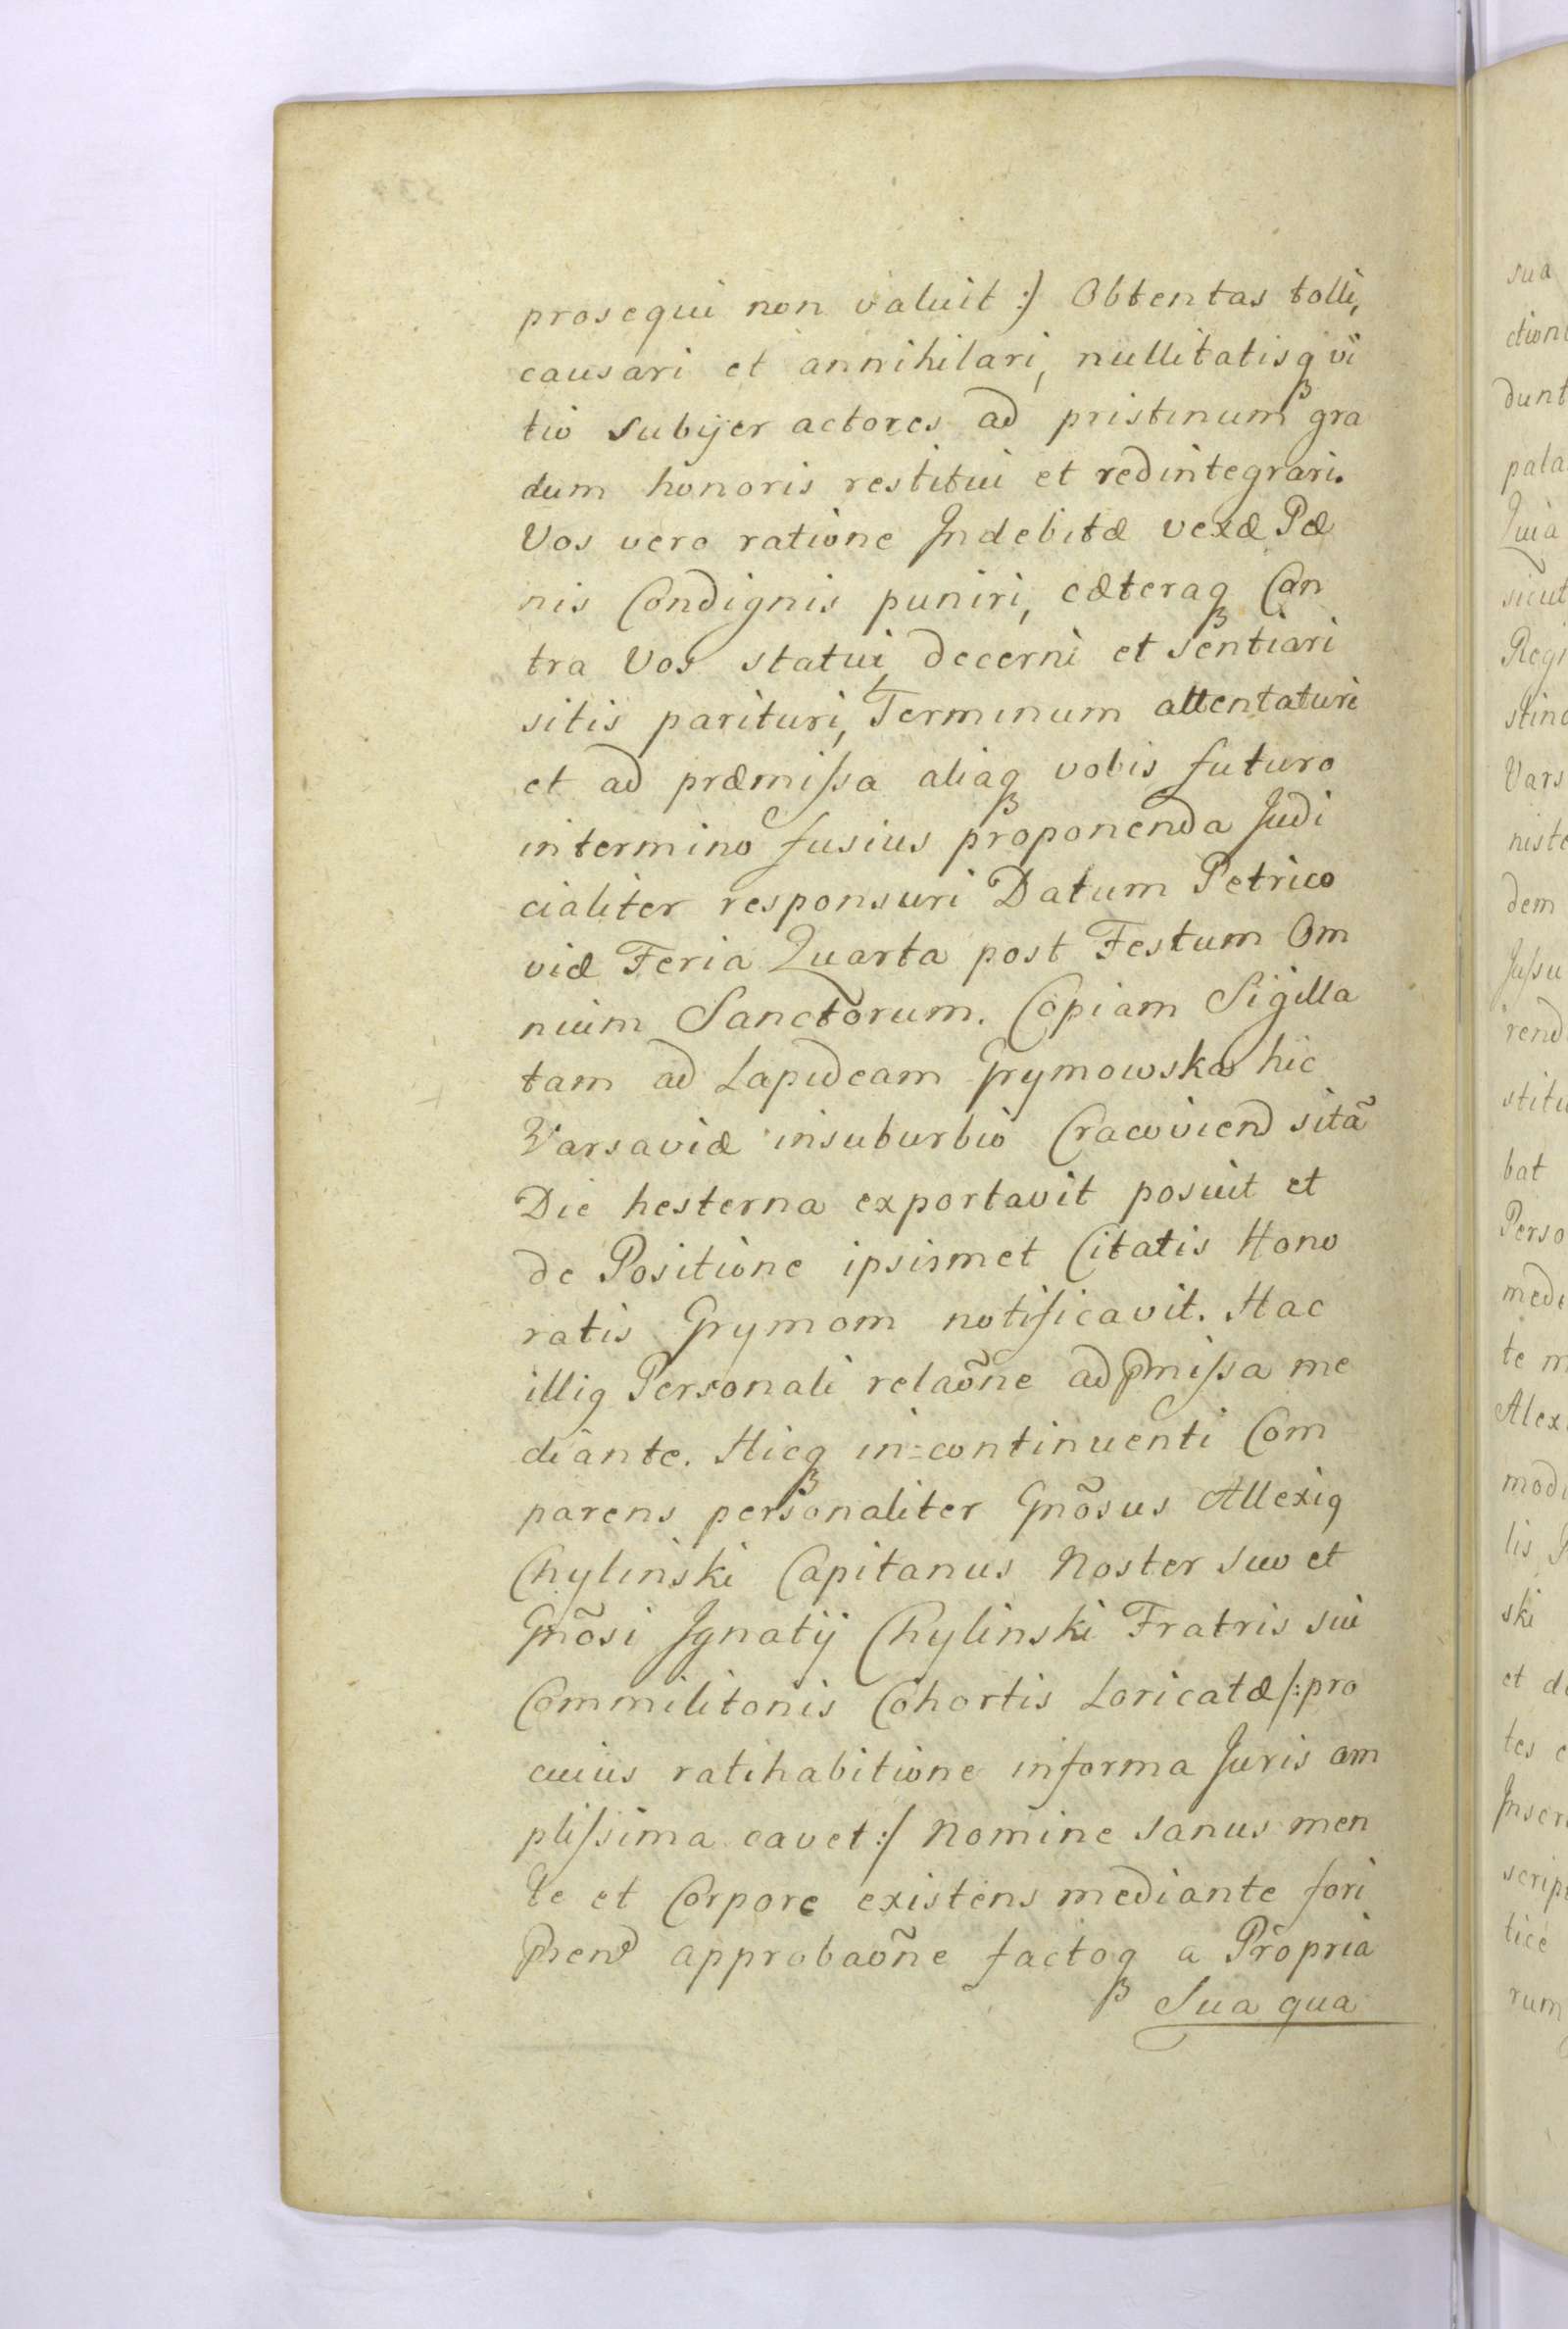 prosequi non valuit :/ Obtentas tolli,
causari et annihilari, nullitatisqȝ vi
tio subijci actores ad pristinum gra
dum honoris restitui et redintegrari.
Vos vero ratione Indebitæ vexæ Pæ
nis Condignis puniri, cæteraqȝ Con
tra Vos statui, decerni et sentiari
sitis parituri, Terminum attentaturi
et ad præmissa aliaqȝ vobis futuro
in termino fusius proponenda Judi
cialiter responsuri Datum Petrico
viæ Feria Quarta post Festum Om
nium Sanctorum. Copiam Sigilla
tam ad Lapideam Grymowska hic
Varsaviæ in suburbio Cracoviens sitã
Die hesterna exportavit posuit et
de Positione ipsismet Citatis Hono
ratis Grymom notificavit. Hac
illiq Personali relaõne ad pmissa me
diante. Hicqȝ in=continuenti Com
parens personaliter Gnõsus Allexiq
Chylinski Capitanus Noster suo et
Gnõsi Ignatij Chylinski Fratris sui
Commilitonis Cohortis Loricatæ /: pro
cuius ratihabitione in forma Juris am
plissima cavet :/ Nomine sanus men
te et Corpore existens mediante fori
pñens approbaõne factoqȝ a Propria
Sua qua
sua
dunt
pala
Quia
sicut
Regi
Vars
niste
dem
rend
stitu
bat
Perso
mede
te m
Alex
modi
lis
ski
et d
tes
scrip
tice
rum